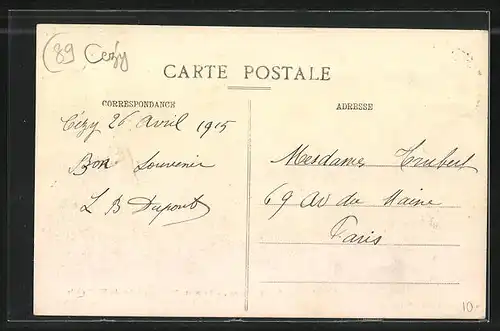 (89 Cézy
CARTE POSTALE
CORRESPONDANCE
ADRESSE
Cézy 26 avril 1915
Bon Souvenir
L B Dupont
Mesdames
69 av du Maine
Paris
10